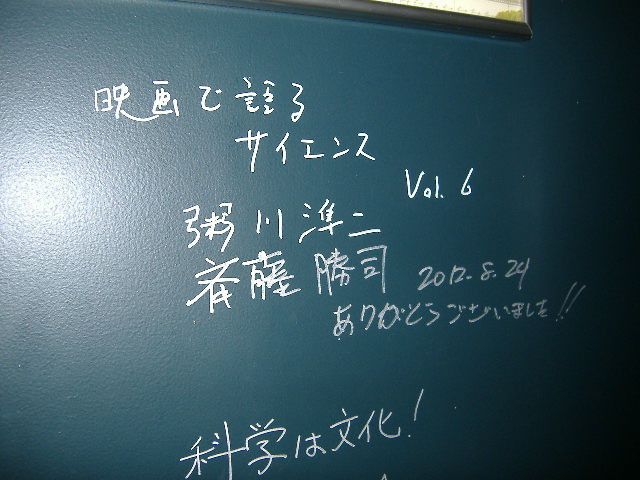 映画で語る
サイエンス
Vol. 6
粥川準二
斉藤勝司 2012.8.24
ありがとうございました!!
科学は文化!